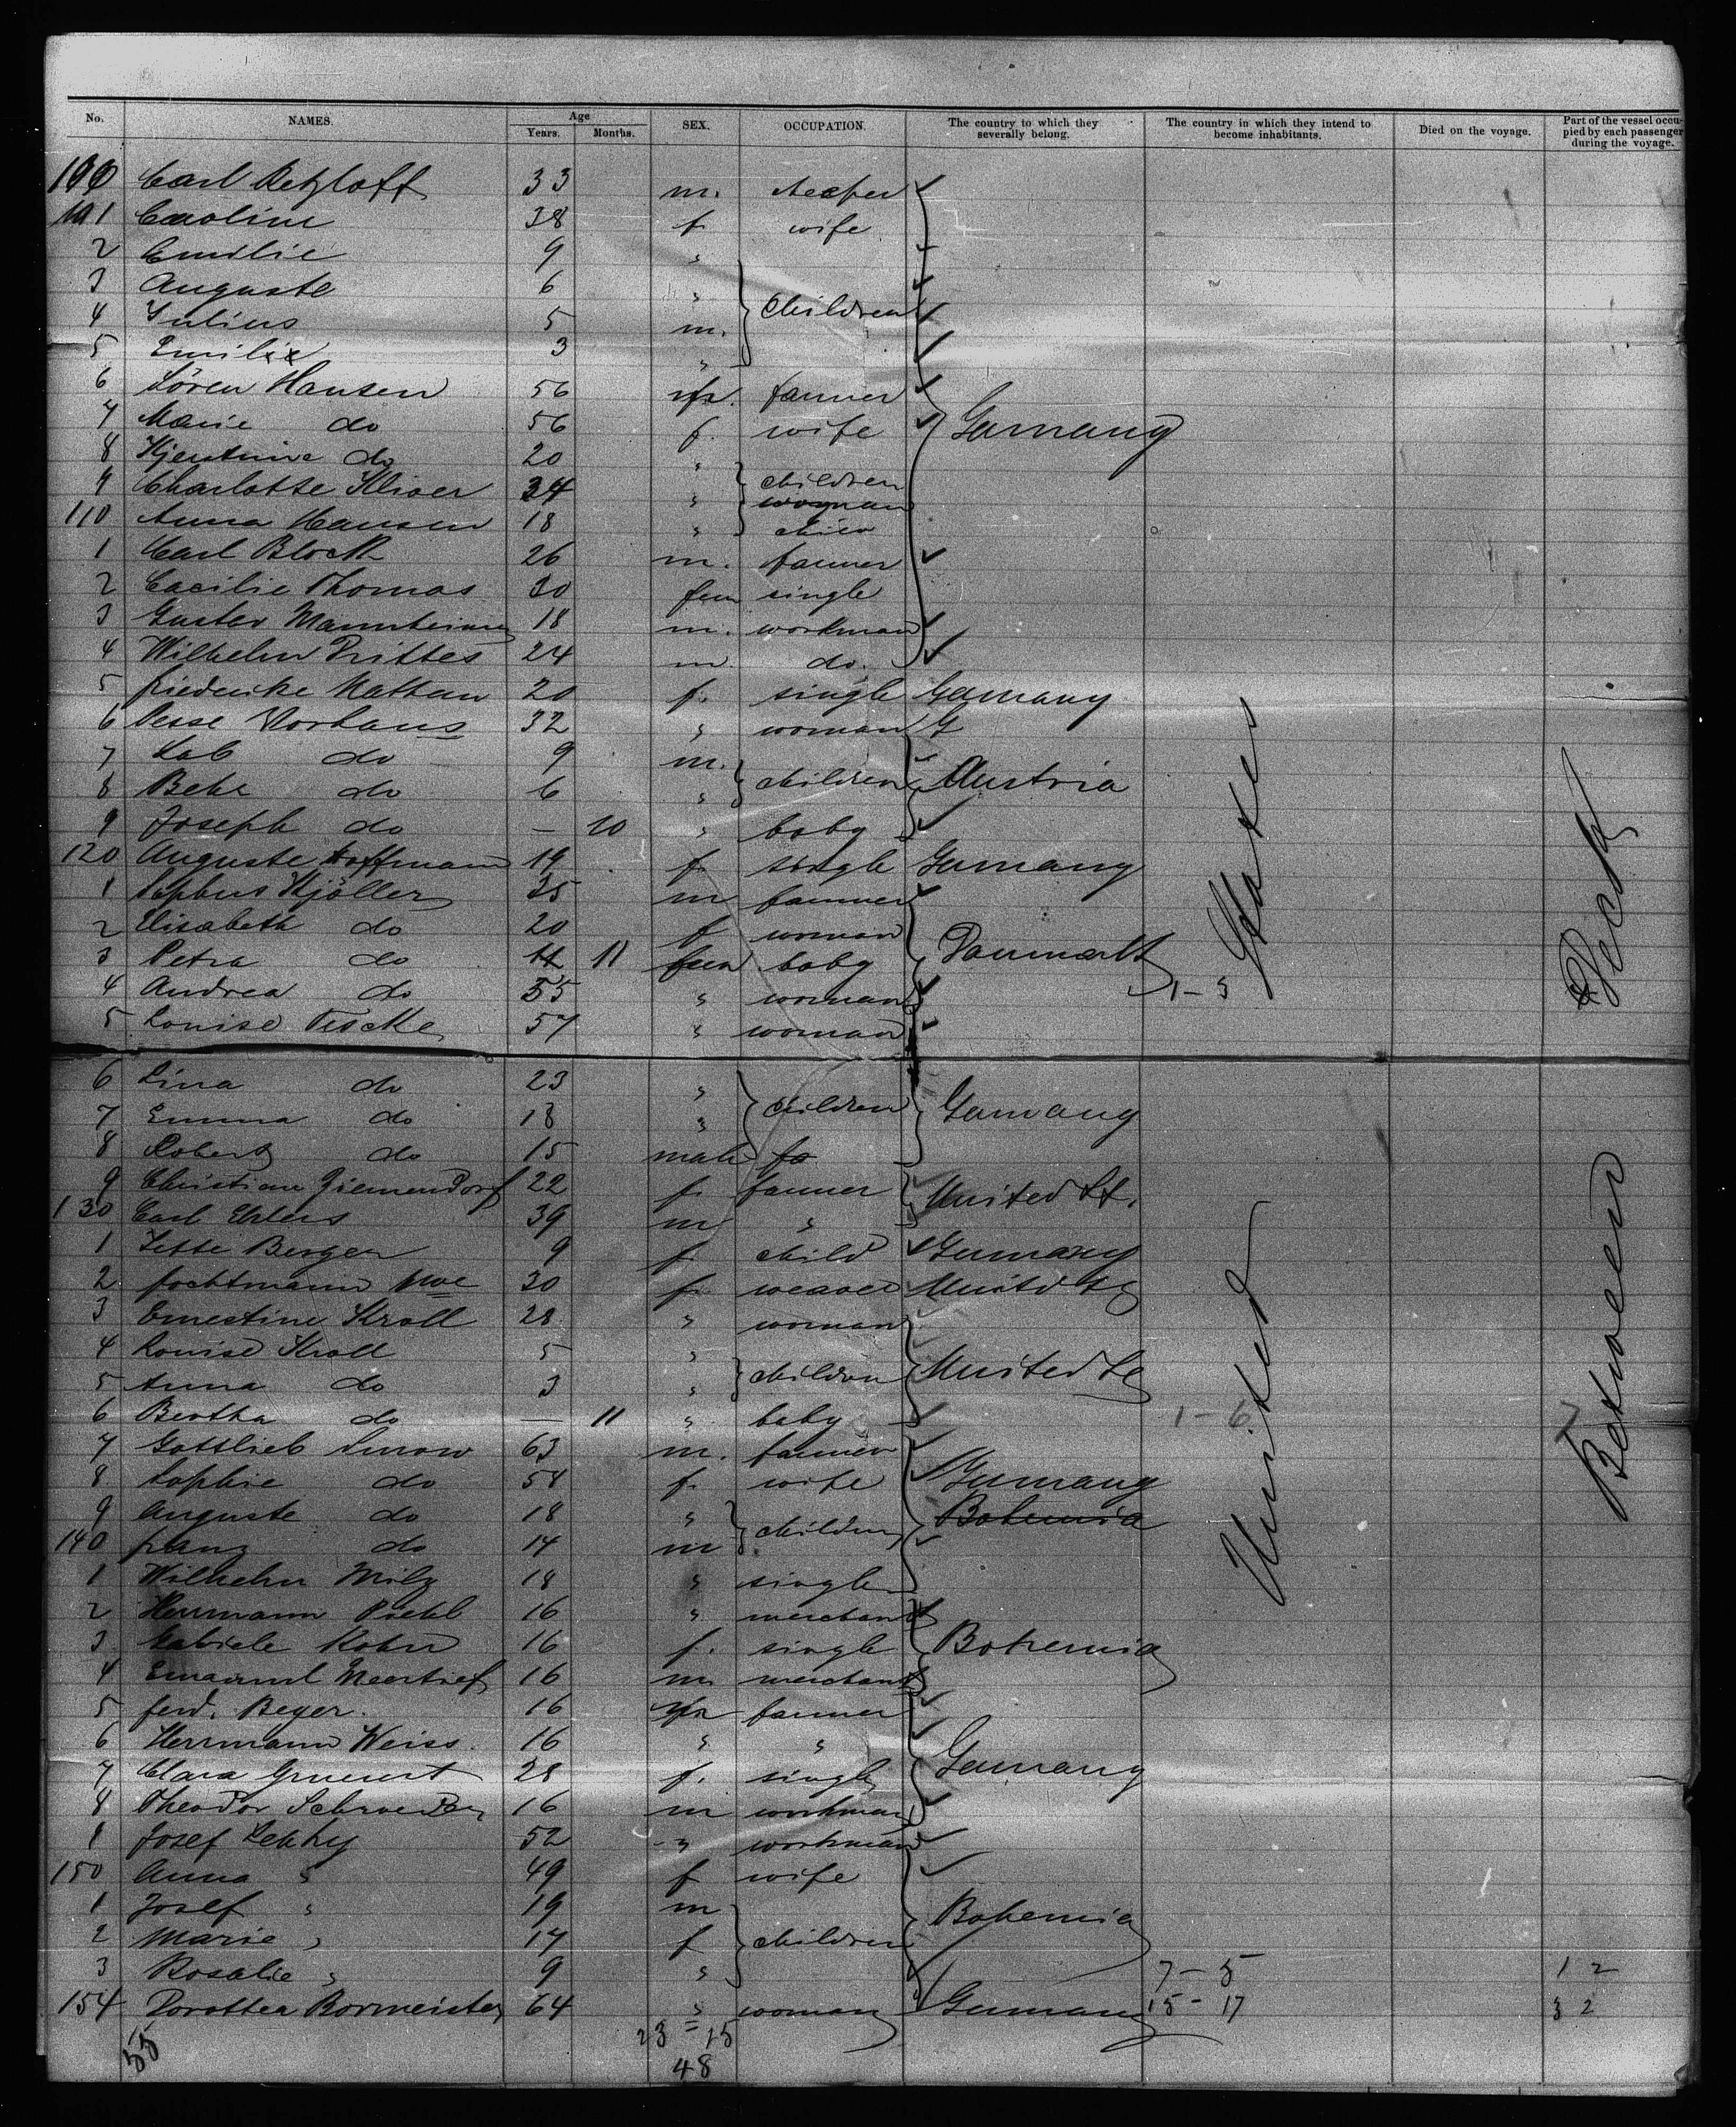 No. NAMES. Age Years. Months. SEX. OCCUPATION. The country to which they severally belong. The country in which they intend to become inhabitants. Died on the voyage. Part of the vessel occupied by each passenger during the voyage.
100 Carl Retzloff 33 m.
101 Caroline 38 f. wife
2 Emilie 9 "
3 Auguste 6 " children
4 Julius 5 m.
5 Emil 3 "
6 Sören Hansen 56 m. farmer
7 Marie do 56 f. wife Germany
8 Kjerstine do 20 "
9 Charlotte Kliver 34 " children woman
110 Anna Hansen 18 " child
1 Carl Block 26 m. farmer
2 Cacilie Thomas 30 fem single
3 Gustav Mannheimer 18 m. workman
4 Wilhelm Prittes 24 m. do.
5 friederike Nathan 20 f. single Germany
6 Pesse Vorhaus 32 " woman G
7 Lab do 9 m.
8 Bebe do 6 " children Austria
9 Joseph do — 10 " baby
120 Auguste Hoffmann 19 f. single Germany
1 Kjöller 35 m farmer
2 Elisabeth do 20 f woman
3 Petra do 11 fem baby Danmark
4 Andrea do 55 " woman 1-3
5 Louise Tiscke 57 " woman
6 Lina do 23 "
7 Emma do 18 " children Germany
8 Robert do 15 male
9 Christiane Ziemendorf 22 f. farmer United St.
130 Carl Ehlers 39 m "
1 Jette Berger 9 f. child Germany
2 fochtmann 30 f. weaver United St
3 Ernestine Kroll 28 " woman
4 Louise Kroll 5 "
5 Anna do 3 " children United St
6 Bertha do — 11 " baby 1-6
7 Gottlieb 63 m. farmer
8 Sophie do 54 f. wife Germany
9 Auguste do 18 " children Bohemia
140 franz do 14 m
1 Wilhelm Milz 18 " single
2 Herrmann 16 " merchant
3 Gabriele Kohn 16 f. single Bohemia
4 Emanuel 16 m. merchant
5 ferd. Beyer. 16 m farmer
6 Herrmann Weiss. 16 " "
7 Clara Grunert 28 f. single Germany
8 Theodor Schroeder 16 m workman
1 Josef 52 " workman
150 Anna " 49 f wife
1 Josef " 19 m
2 Marie " 17 f children Bohemia
3 Rosalie " 9 " 7-5 1 2
154 Dorothea Bormeister 64 " woman Germany 15-17 3 2
55 23 = 15
48
United States
Between Decks